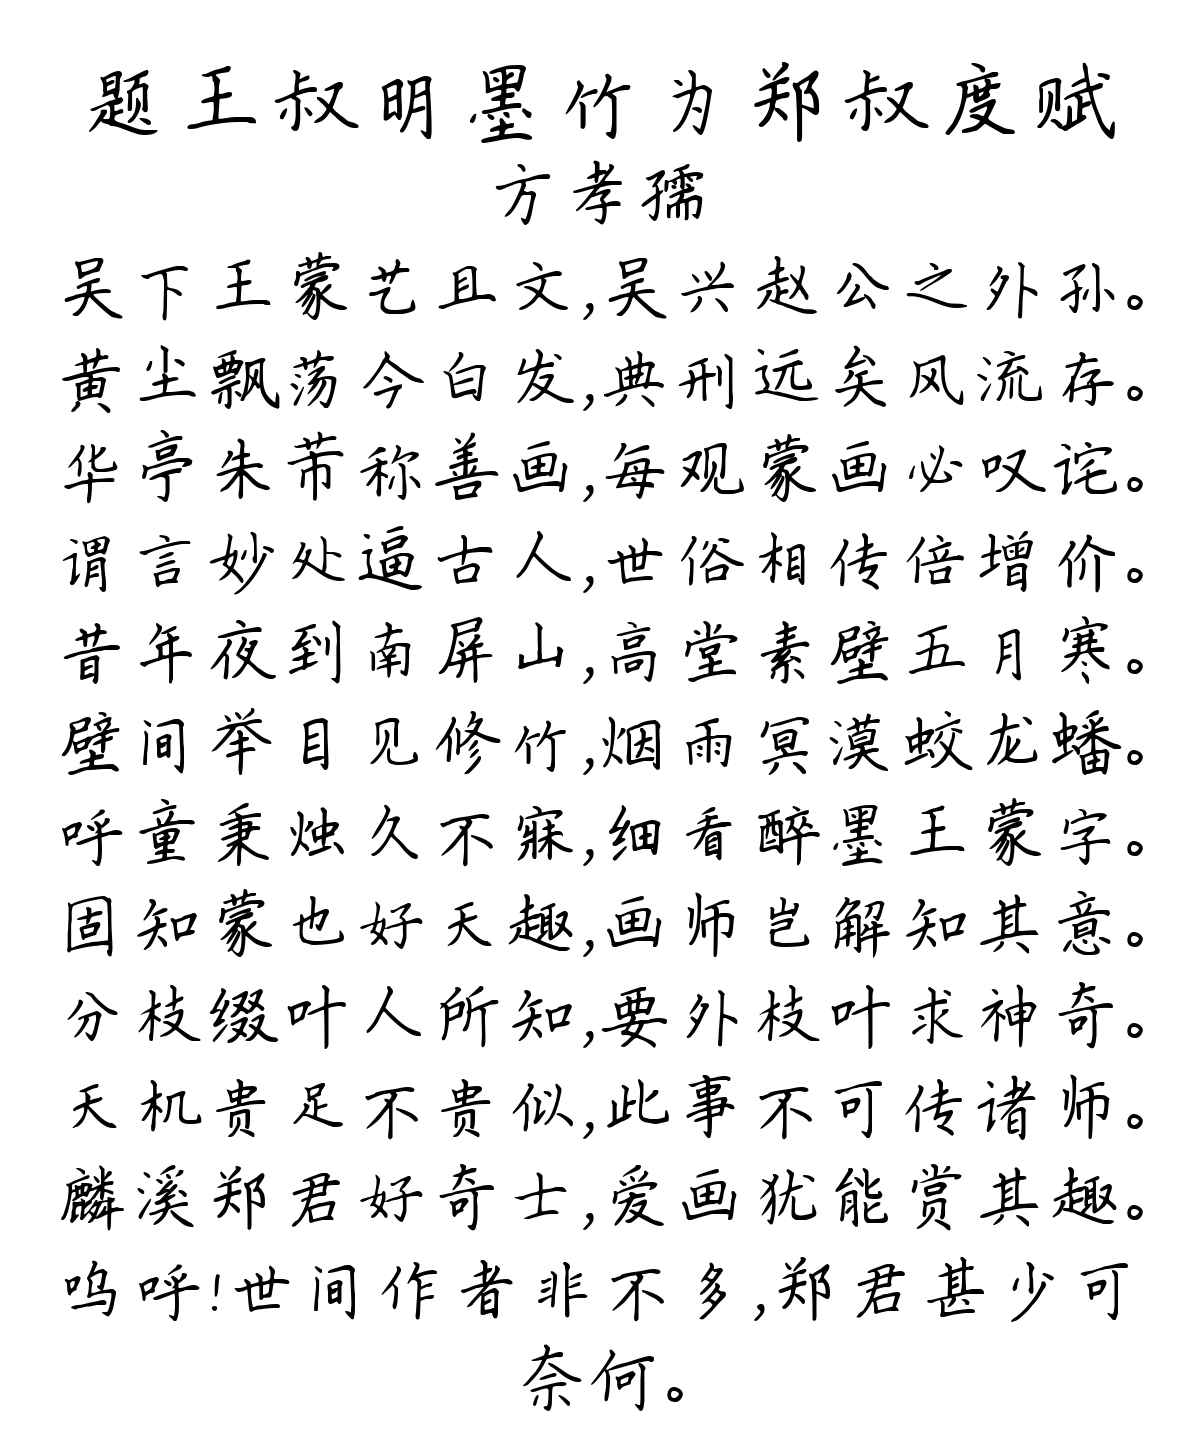 题王叔明墨竹为郑叔度赋
方孝孺
吴下王蒙艺且文,吴兴赵公之外孙。
黄尘飘荡今白发,典刑远矣风流存。
华亭朱芾称善画,每观蒙画必叹诧。
谓言妙处逼古人,世俗相传倍增价。
昔年夜到南屏山,高堂素壁五月寒。
壁间举目见修竹,烟雨冥漠蛟龙蟠。
呼童秉烛久不寐,细看醉墨王蒙字。
固知蒙也好天趣,画师岂解知其意。
分枝缀叶人所知,要外枝叶求神奇。
天机贵足不贵似,此事不可传诸师。
麟溪郑君好奇士,爱画犹能赏其趣。
呜呼!世间作者非不多,郑君甚少可
奈何。